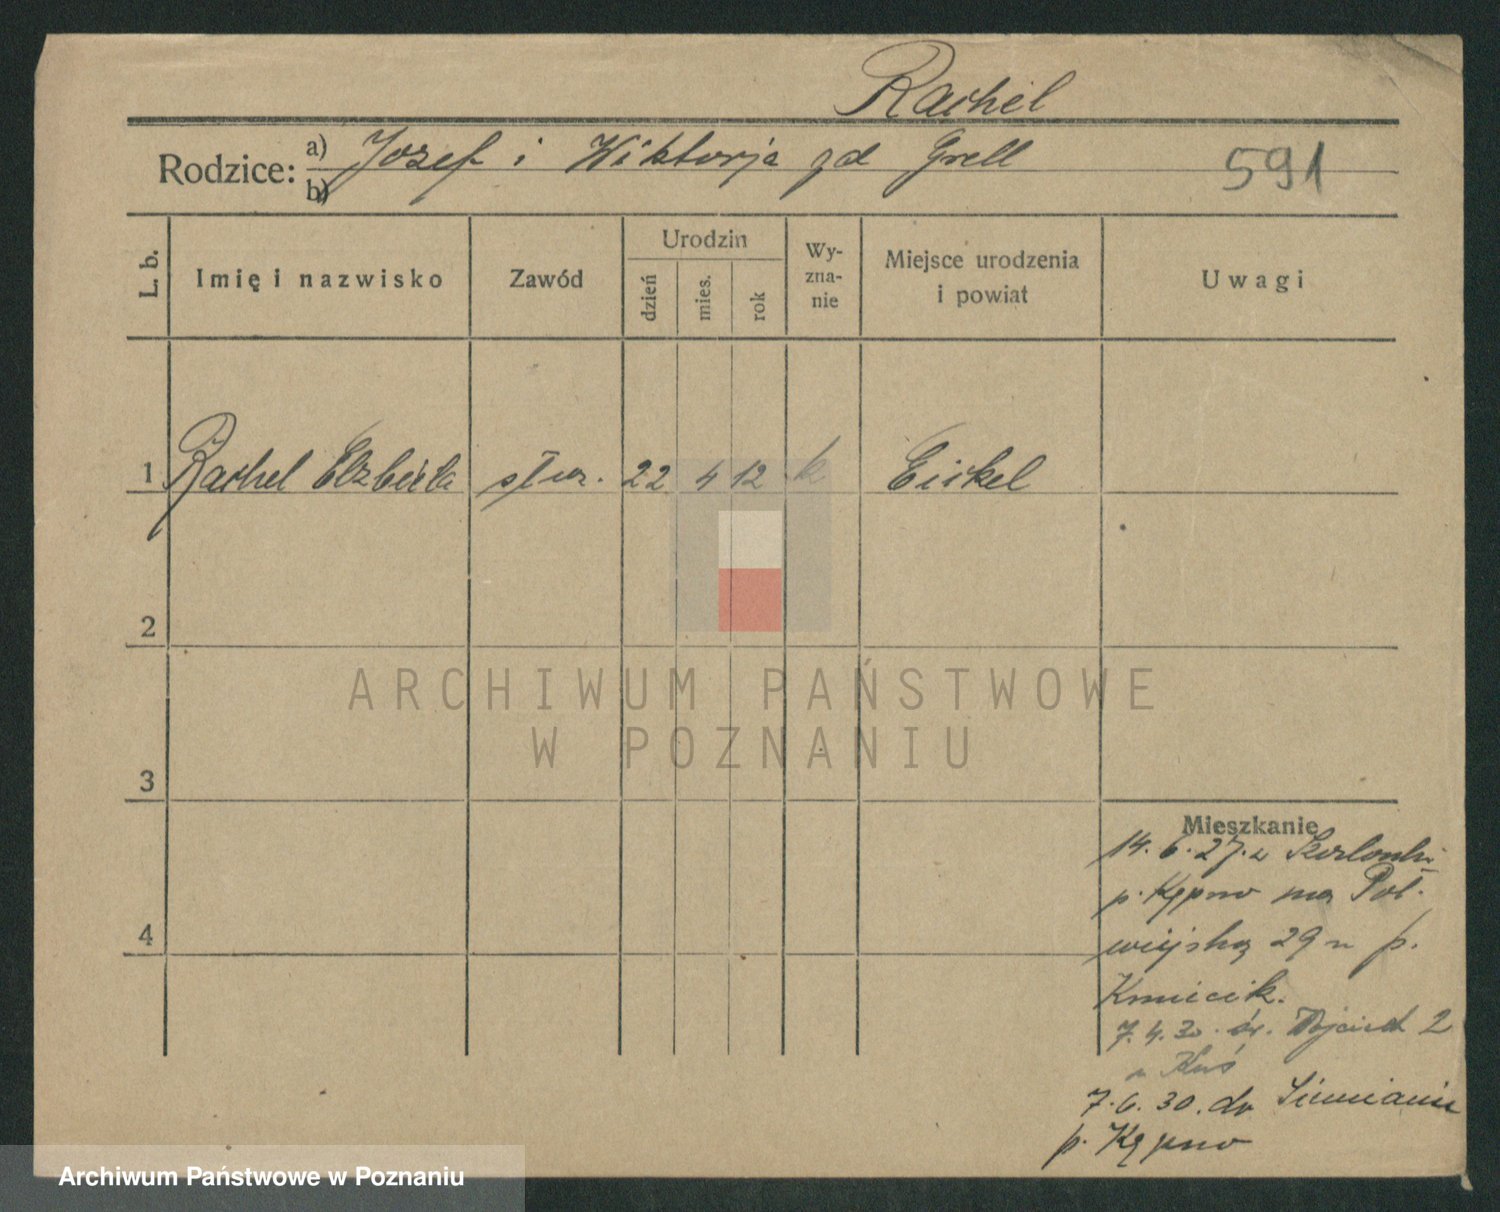 Rachel
Rodzice: a) Józef i Wiktorja zd Grell
b)
591
L. b.
Imię i nazwisko
Zawód
Urodzin
dzień
mies.
rok
Wy-
zna-
nie
Miejsce urodzenia
i powiat
Uwagi
1 Rachel Elżbieta służ. 22 4 12 k Eickel
2
3
4
Mieszkanie
14. 6. 27. z
p. Kępno na Pół-
wiejską 29 u p.
Kmiecik.
7. 4. 30. św. Wojciech 2
u Kuś
7. 6. 30. do Siemianic
p. Kępno
ARCHIWUM PAŃSTWOWE
W POZNANIU
Archiwum Państwowe w Poznaniu